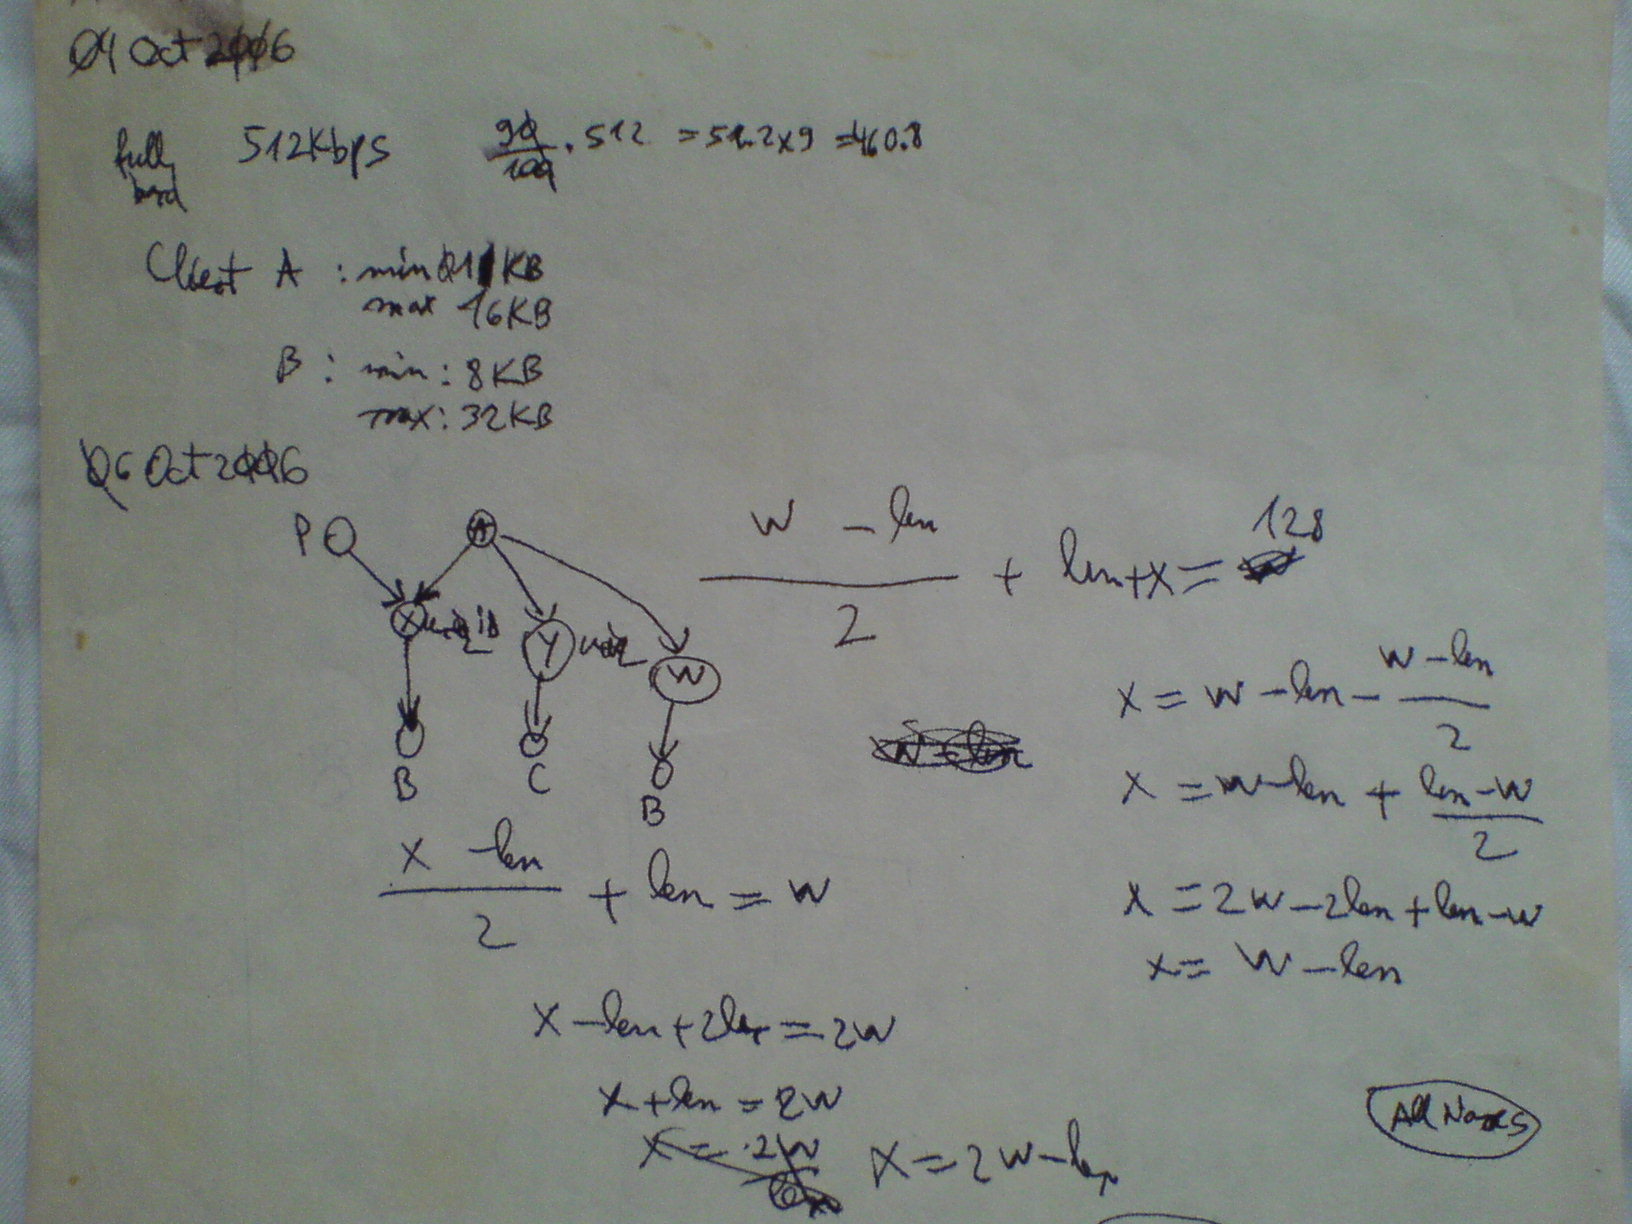 04 Oct 2006
fully 512Kbps 90/100 . 512 = 51.2x9 = 460.8
Client A : min 1 KB
max 16KB
B : min : 8KB
max: 32KB
06 Oct 2006
P A
X Y W
B C B
(W - len)/2 + len + x = 128
x = W - len - (W - len)/2
x = w - len + (len - W)/2
x = 2W - 2len + len - w
x = W - len
(X - len)/2 + len = W
X - len + 2len = 2W
X + len = 2W
X = 2W - len
All Names